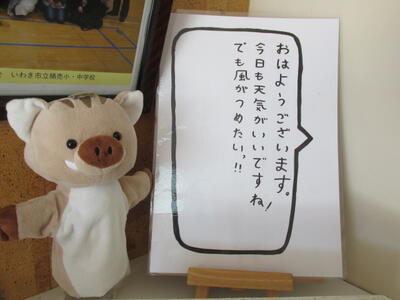 おはようございます。
今日も天気がいいですね!
でも風がつめたいっ!!
いわき市立桶売小・中学校